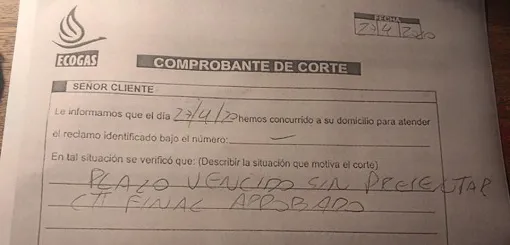 ECOGAS
FECHA
27/4/2020
COMPROBANTE DE CORTE
SEÑOR CLIENTE
Le informamos que el día 27/4/20 hemos concurrido a su domicilio para atender
el reclamo identificado bajo el número:
En tal situación se verificó que: (Describir la situación que motiva el corte)
PLAZO VENCIDO SIN PRESENTAR
FINAL APROBADO